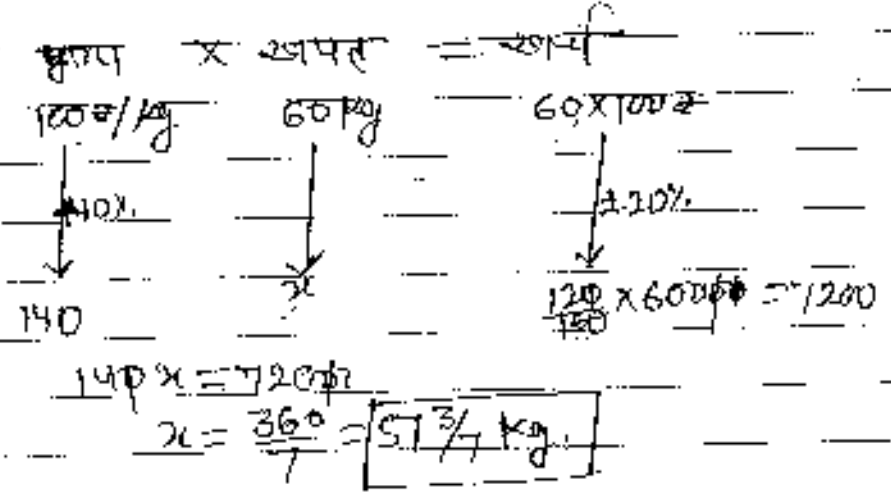 मूल्य × खपत = खर्च
100₹/kg 60kg 60×100₹
↑40% ↑20%
140 x 120/100 × 6000 = 7200
140x = 7200
x = 360/7 = 51 3/7 kg